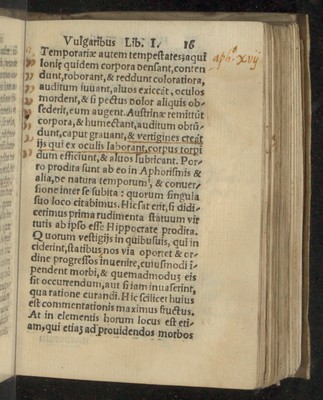 Vulgaribus Lib. I. 16
Temporariæ autem tempestates; aqui
lonię quidem corpora densant, conten
dunt, roborant, & reddunt coloratiora,
auditum iuuant, aluos exiccāt, oculos
mordent, & si pectus dolor aliquis ob-
sederit, eum augent. Austrinæ remittūt
corpora, & humectant, auditum obtū-
dunt, caput grauant, & vertigines creāt
ijs qui ex oculis laborant, corpus torpi
dum efficiunt, & aluos lubricant. Por-
ro prodita sunt ab eo in Aphorismis &
alia, de natura temporum, & conuer-
sione inter se subita: quorum singula
suo loco citabimus. Hic sat erit, si didi-
cerimus prima rudimenta statuum vir
tutis ab ipso esse Hippocrate prodita.
Quorum vestigijs in quibusuis, qui in
ciderint, statibus nos via oportet & or-
dine progressos inuenire, cuiusmodi i-
pendent morbi, & quemadmodū eis
sit occurrendum, aut si iam inuaserint,
qua ratione curandi. Hic scilicet huius
est commentationis maximus fructus.
At in elementis horum locus est eti-
am, qui etiaȝ ad prouidendos morbos
aph. xvij